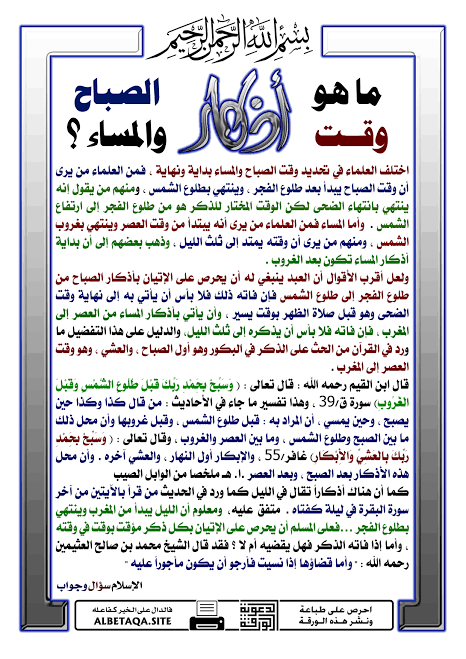 بسم الله الرحمن الرحيم
ما هو وقت أذكار الصباح والمساء ؟
اختلف العلماء في تحديد وقت الصباح والمساء بداية ونهاية ، فمن العلماء من يرى
أن وقت الصباح يبدأ بعد طلوع الفجر ، وينتهي بطلوع الشمس ، ومنهم من يقول إنه
ينتهي بانتهاء الضحى لكن الوقت المختار للذكر هو من طلوع الفجر إلى ارتفاع
الشمس . وأما المساء فمن العلماء من يرى أنه يبتدأ من وقت العصر وينتهي بغروب
الشمس ، ومنهم من يرى أن وقته يمتد إلى ثلث الليل ، وذهب بعضهم إلى أن بداية
أذكار المساء تكون بعد الغروب .
ولعل أقرب الأقوال أن العبد ينبغي له أن يحرص على الإتيان بأذكار الصباح من
طلوع الفجر إلى طلوع الشمس فإن فاته ذلك فلا بأس أن يأتي به إلى نهاية وقت
الضحى وهو قبل صلاة الظهر بوقت يسير ، وأن يأتي بأذكار المساء من العصر إلى
المغرب ، فإن فاته فلا بأس أن يذكره إلى ثلث الليل، والدليل على هذا التفضيل ما
ورد في القرآن من الحث على الذكر في البكور وهو أول الصباح ، والعشي ، وهو وقت
العصر إلى المغرب .
قال ابن القيم رحمه الله : قال تعالى : ( وَسَبِّحْ بِحَمْدِ رَبِّكَ قَبْلَ طُلُوعِ الشَّمْسِ وَقَبْلَ
الْغُرُوبِ) سورة ق/39 ، وهذا تفسير ما جاء في الأحاديث : من قال كذا وكذا حين
يصبح ، وحين يمسي ، أن المراد به : قبل طلوع الشمس ، وقبل غروبها وأن محل ذلك
ما بين الصبح وطلوع الشمس ، وما بين العصر والغروب ، وقال تعالى : ( وَسَبِّحْ بِحَمْدِ
رَبِّكَ بِالْعَشِيِّ وَالْأِبْكَارِ) غافر/55 ، والإبكار أول النهار ، والعشي آخره . وأن محل
هذه الأذكار بعد الصبح ، وبعد العصر .ا. هـ ملخصا من الوابل الصيب
كما أن هناك أذكاراً تقال في الليل كما ورد في الحديث من قرأ بالآيتين من آخر
سورة البقرة في ليلة كفتاه . متفق عليه، ومعلوم أن الليل يبدأ من المغرب وينتهي
بطلوع الفجر ...فعلى المسلم أن يحرص على الإتيان بكل ذكر مؤقت بوقت في وقته
، وأما إذا فاته الذكر فهل يقضيه أم لا ؟ فقد قال الشيخ محمد بن صالح العثيمين
رحمه الله : " وأما قضاؤها إذا نسيت فأرجو أن يكون مأجوراً عليه "
الإسلام سؤال وجواب
احرص على طباعة
ونشر هذه الورقة
الورقة الدعوية
فالدال على الخير كفاعله
ALBETAQA.SITE